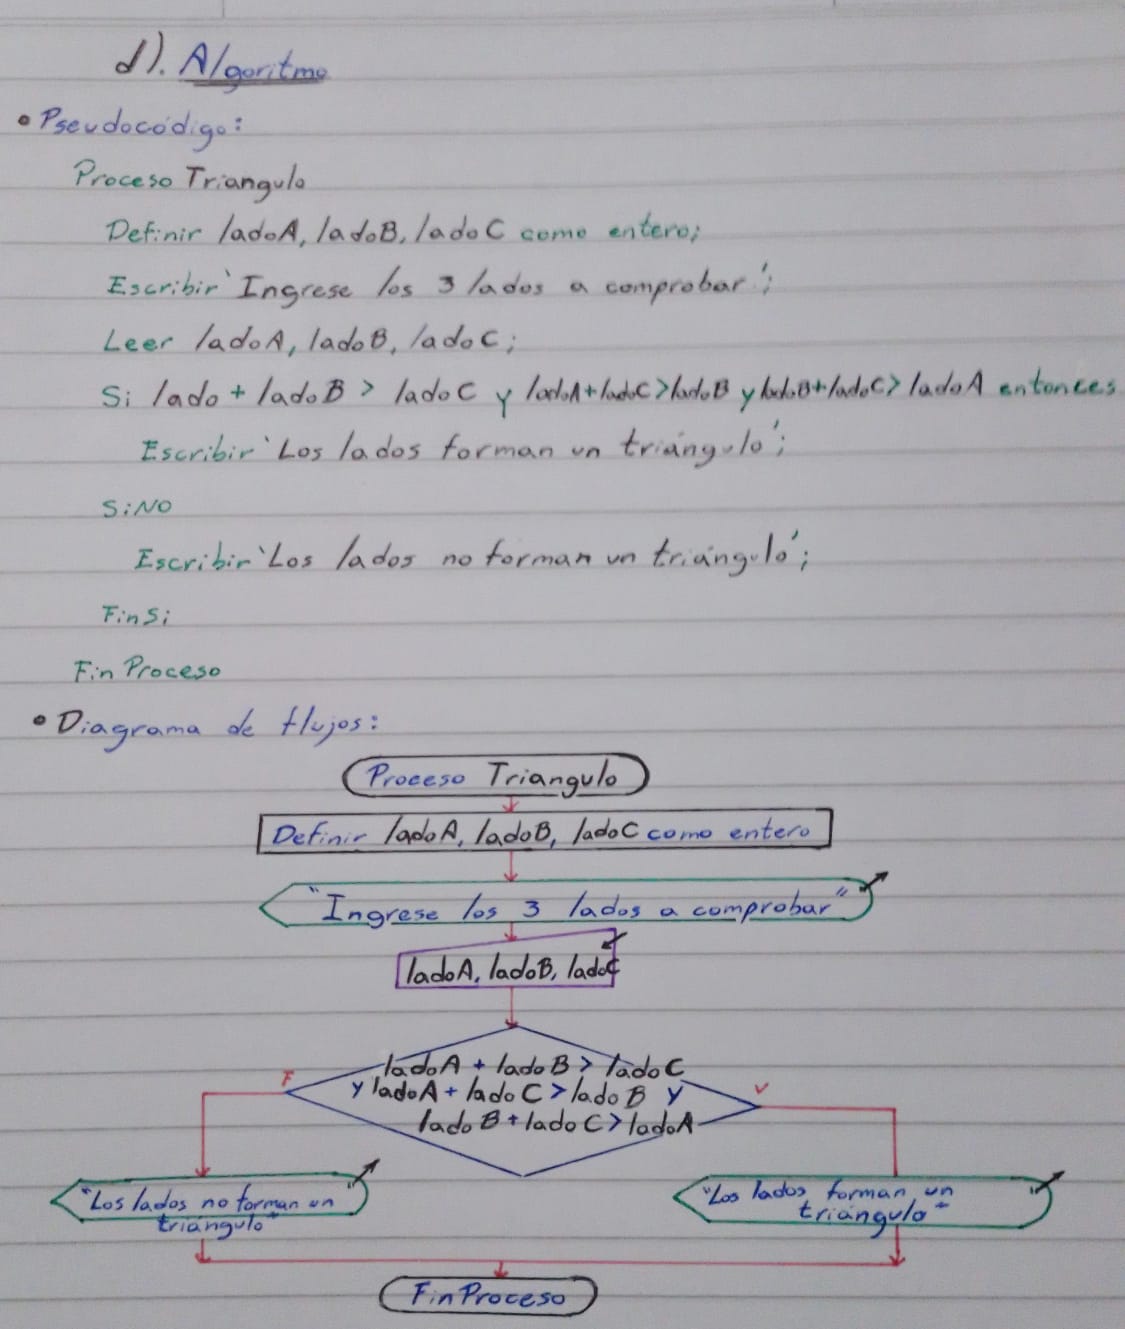 d). Algoritmo
• Pseudocódigo:
Proceso Triangulo
Definir ladoA, ladoB, ladoC como entero;
Escribir 'Ingrese los 3 lados a comprobar';
Leer ladoA, ladoB, ladoC;
Si lado + ladoB > ladoC y ladoA+ladoC>ladoB y ladoB+ladoC> ladoA entonces
Escribir 'Los lados forman un triángulo';
SiNO
Escribir 'Los lados no forman un triángulo';
FinSi
Fin Proceso
• Diagrama de flujos:
Proceso Triangulo
Definir ladoA, ladoB, ladoC como entero
"Ingrese los 3 lados a comprobar"
ladoA, ladoB, ladoC
ladoA + ladoB > ladoC
y ladoA + ladoC > ladoB y
ladoB + ladoC > ladoA
F
V
"Los lados no forman un
triángulo"
"Los lados forman un
triángulo"
FinProceso